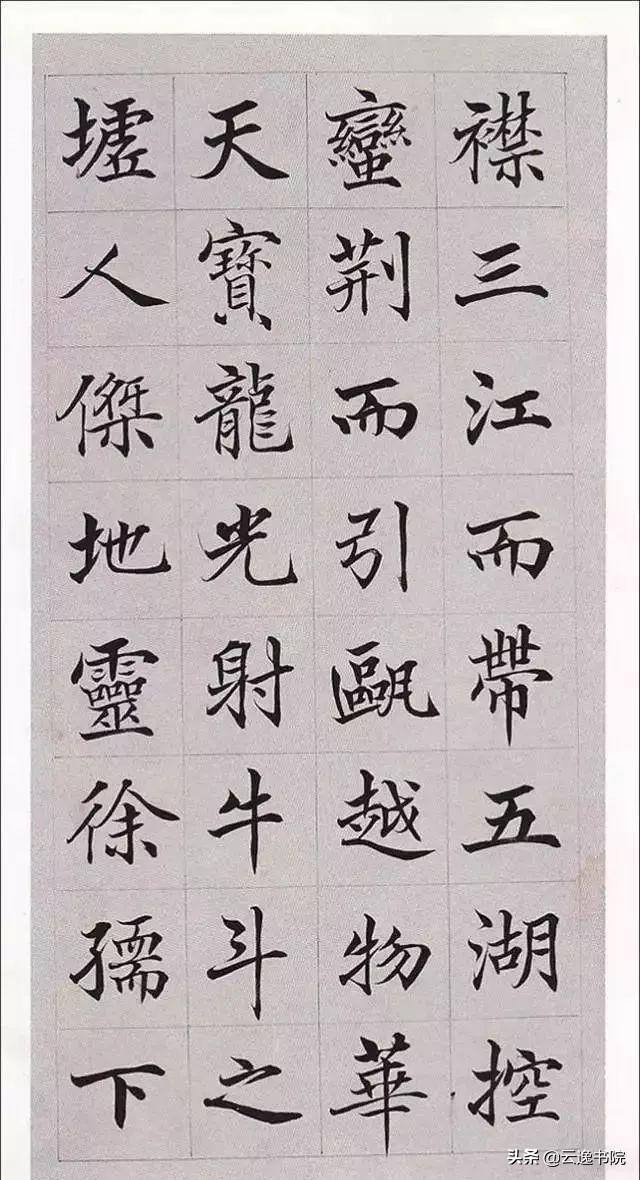 襟三江而帶五湖控
蠻荆而引甌越物華
天寶龍光射牛斗之
墟人傑地靈徐孺下
头条 @云逸书院